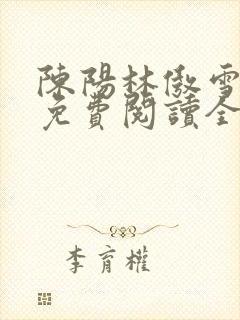 陳陽林傲雪
免費閱讀全
李育權